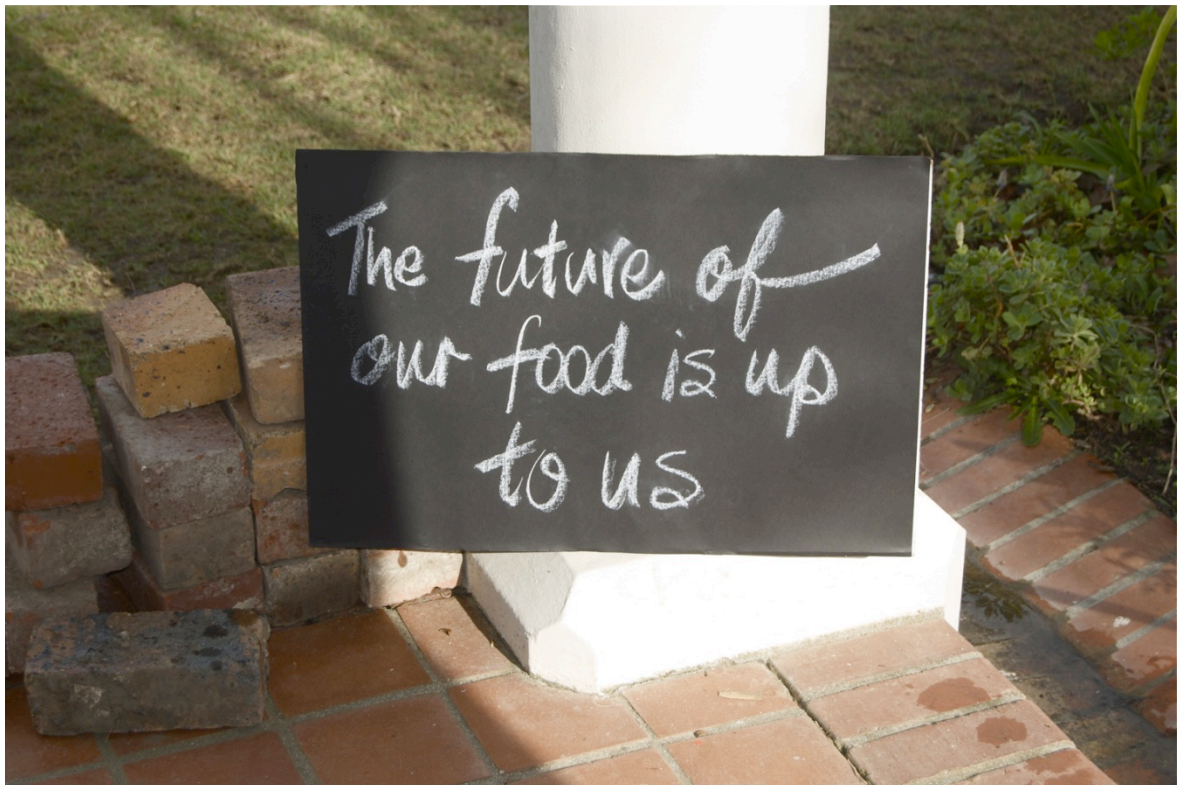 The future of
our food is up
to us